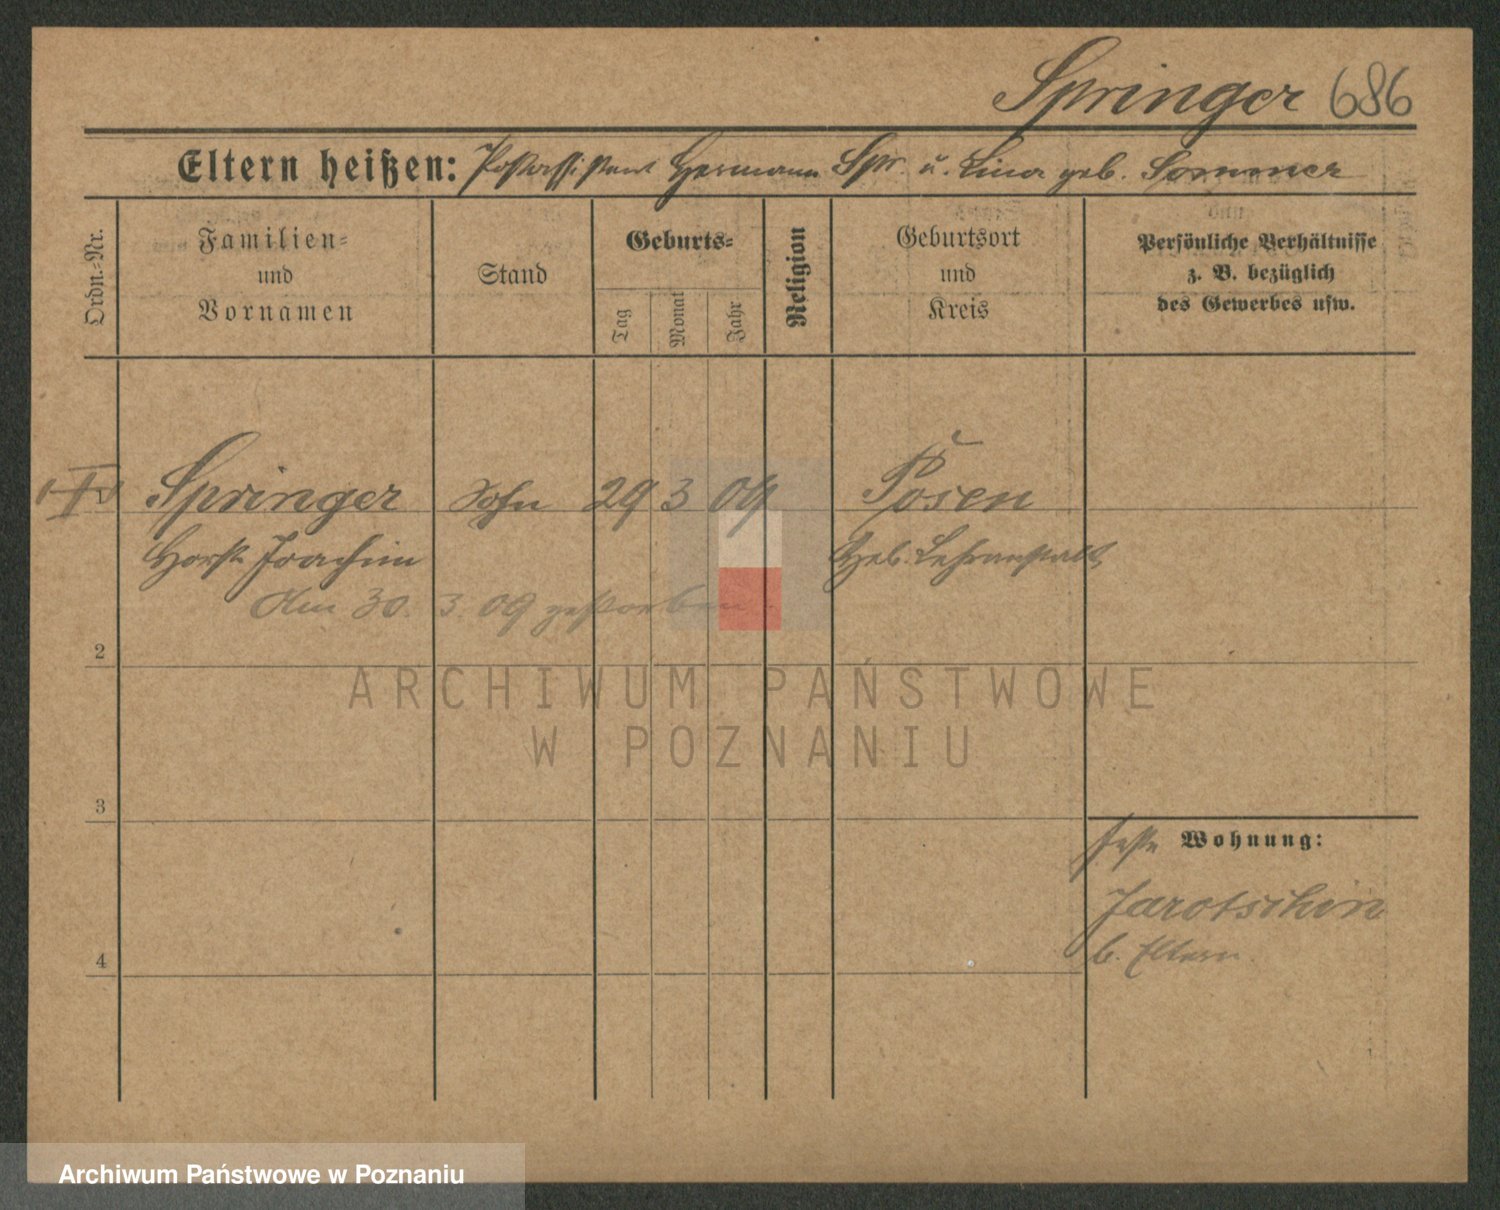 Springer 686
Eltern heißen: Postassistent Hermann Spr. u. Lina geb. Sommer
Ordn.-Nr.
Familien-
und
Vornamen
Stand
Geburts-
Tag
Monat
Jahr
Religion
Geburtsort
und
Kreis
Persönliche Verhältnisse
z. B. bezüglich
des Gewerbes usw.
Springer Sohn 29 3 09 Posen
Horst Joachim Heb. Lehranstalt
Am 30. 3. 09 gestorben.
2
3
feste Wohnung:
Jarotschin
b. Eltern
4
ARCHIWUM PAŃSTWOWE
W POZNANIU
Archiwum Państwowe w Poznaniu